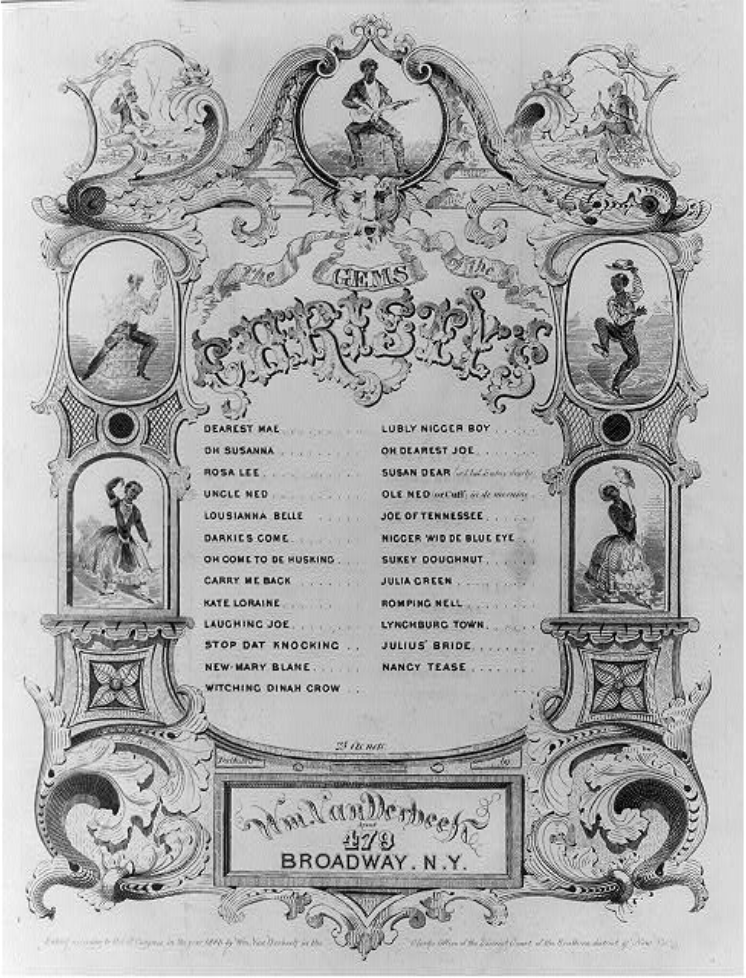 The GEMS of the
CHRISTY'S
DEAREST MAE
OH SUSANNA
ROSA LEE
UNCLE NED
LOUSIANNA BELLE
DARKIES COME
OH COME TO DE HUSKING
CARRY ME BACK
KATE LORAINE
LAUGHING JOE
STOP DAT KNOCKING
NEW-MARY BLANE
WITCHING DINAH CROW
LUBLY NIGGER BOY
OH DEAREST JOE
SUSAN DEAR
OLE NED or Cuff; in de morning
JOE OF TENNESSEE
NIGGER WID DE BLUE EYE
SUKEY DOUGHNUT
JULIA GREEN
ROMPING NELL
LYNCHBURG TOWN
JULIUS' BRIDE
NANCY TEASE
25 Cts nett.
by
Wm. VanDerbeek
479
BROADWAY. N.Y.
Entered according to Act of Congress in the year by Wm. Van Derbeek in the Clerks Office of the District Court of the Southern district of New